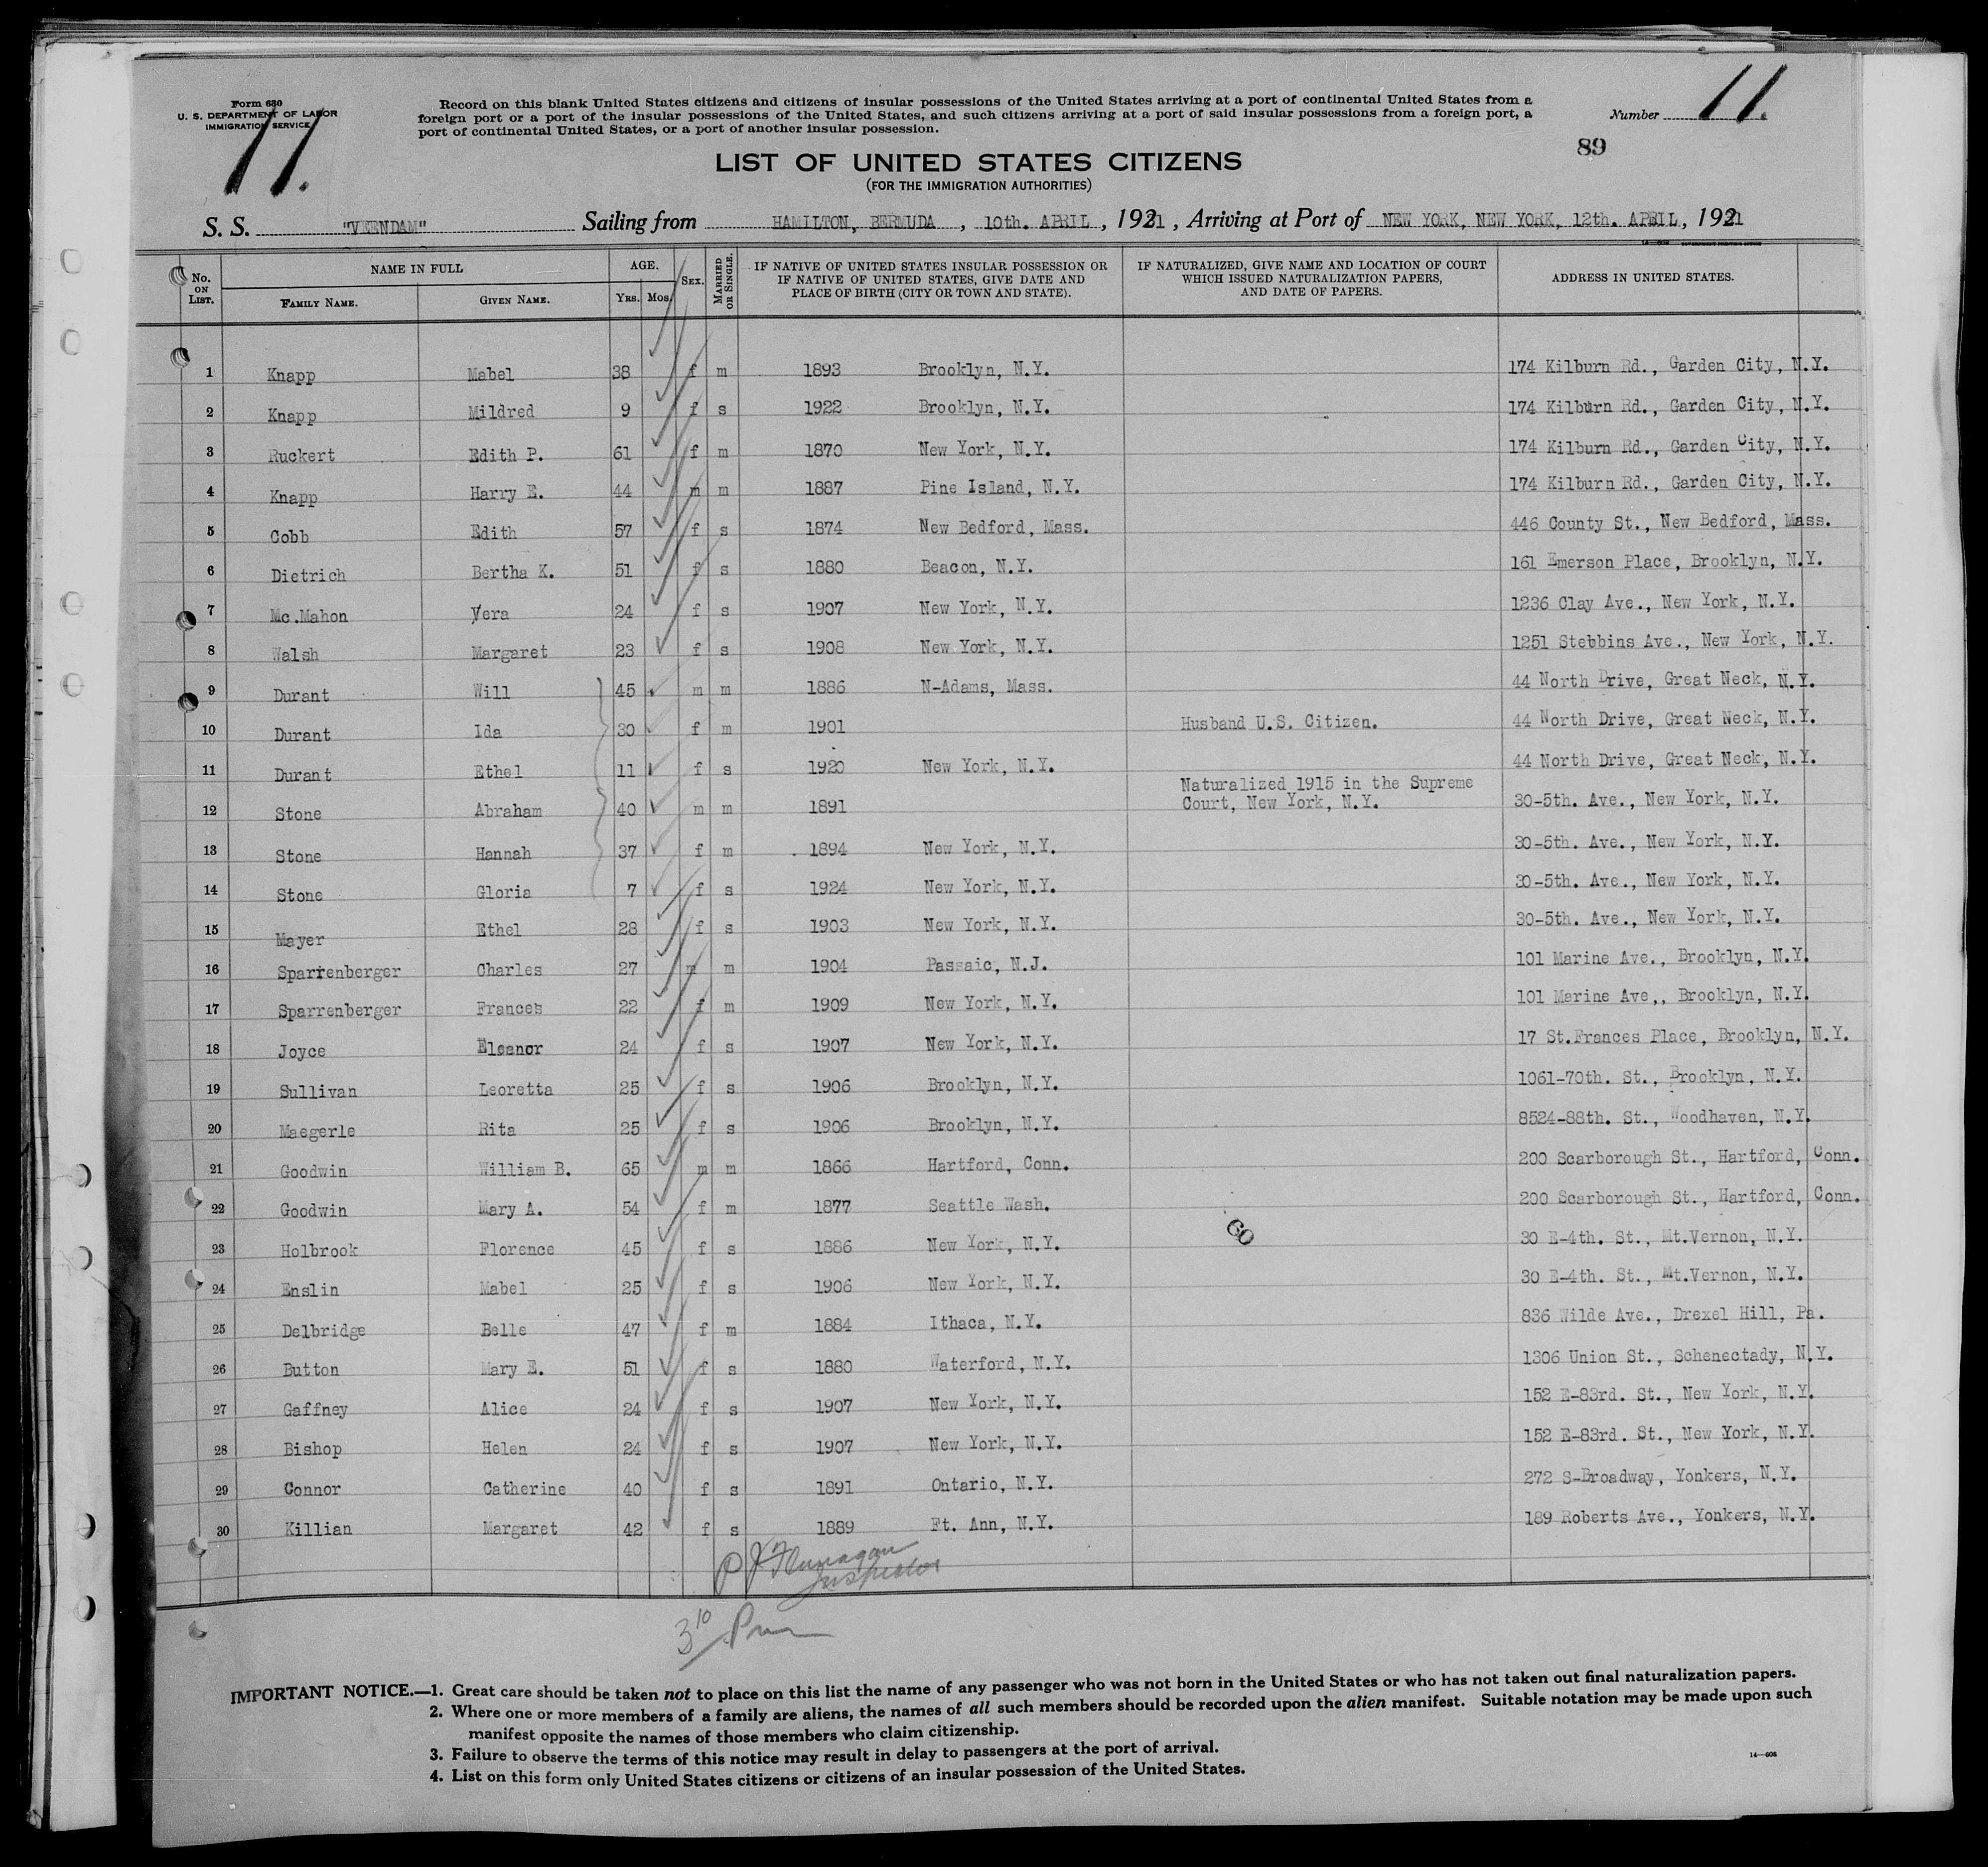 Form 630
U. S. DEPARTMENT OF LABOR
IMMIGRATION SERVICE
11.
Record on this blank United States citizens and citizens of insular possessions of the United States arriving at a port of continental United States from a
foreign port or a port of the insular possessions of the United States, and such citizens arriving at a port of said insular possessions from a foreign port, a
port of continental United States, or a port of another insular possession.
Number 11.
89
LIST OF UNITED STATES CITIZENS
(FOR THE IMMIGRATION AUTHORITIES)
S. S. "VEENDAM" Sailing from HAMILTON, BERMUDA, 10th. APRIL, 1931, Arriving at Port of NEW YORK, NEW YORK, 12th. APRIL, 1931
No. ON LIST. NAME IN FULL FAMILY NAME. GIVEN NAME. AGE. YRS. MOS. SEX. MARRIED OR SINGLE. IF NATIVE OF UNITED STATES INSULAR POSSESSION OR IF NATIVE OF UNITED STATES, GIVE DATE AND PLACE OF BIRTH (CITY OR TOWN AND STATE). IF NATURALIZED, GIVE NAME AND LOCATION OF COURT WHICH ISSUED NATURALIZATION PAPERS, AND DATE OF PAPERS. ADDRESS IN UNITED STATES.
1 Knapp Mabel 38 f m 1893 Brooklyn, N.Y. 174 Kilburn Rd., Garden City, N.Y.
2 Knapp Mildred 9 f s 1922 Brooklyn, N.Y. 174 Kilburn Rd., Garden City, N.Y.
3 Ruckert Edith P. 61 f m 1870 New York, N.Y. 174 Kilburn Rd., Garden City, N.Y.
4 Knapp Harry E. 44 m m 1887 Pine Island, N.Y. 174 Kilburn Rd., Garden City, N.Y.
5 Cobb Edith 57 f s 1874 New Bedford, Mass. 446 County St., New Bedford, Mass.
6 Dietrich Bertha K. 51 f s 1880 Beacon, N.Y. 161 Emerson Place, Brooklyn, N.Y.
7 Mc.Mahon Vera 24 f s 1907 New York, N.Y. 1236 Clay Ave., New York, N.Y.
8 Walsh Margaret 23 f s 1908 New York, N.Y. 1251 Stebbins Ave., New York, N.Y.
9 Durant Will 45 m m 1886 N-Adams, Mass. 44 North Drive, Great Neck, N.Y.
10 Durant Ida 30 f m 1901 Husband U.S. Citizen. 44 North Drive, Great Neck, N.Y.
11 Durant Ethel 11 f s 1920 New York, N.Y. 44 North Drive, Great Neck, N.Y.
12 Stone Abraham 40 m m 1891 Naturalized 1915 in the Supreme Court, New York, N.Y. 30-5th. Ave., New York, N.Y.
13 Stone Hannah 37 f m 1894 New York, N.Y. 30-5th. Ave., New York, N.Y.
14 Stone Gloria 7 f s 1924 New York, N.Y. 30-5th. Ave., New York, N.Y.
15 Mayer Ethel 28 f s 1903 New York, N.Y. 30-5th. Ave., New York, N.Y.
16 Sparrenberger Charles 27 m m 1904 Passaic, N.J. 101 Marine Ave., Brooklyn, N.Y.
17 Sparrenberger Frances 22 f m 1909 New York, N.Y. 101 Marine Ave,, Brooklyn, N.Y.
18 Joyce Eleanor 24 f s 1907 New York, N.Y. 17 St.Frances Place, Brooklyn, N.Y.
19 Sullivan Leoretta 25 f s 1906 Brooklyn, N.Y. 1061-70th. St., Brooklyn, N.Y.
20 Maegerle Rita 25 f s 1906 Brooklyn, N.Y. 8524-88th. St., Woodhaven, N.Y.
21 Goodwin William B. 65 m m 1866 Hartford, Conn. 200 Scarborough St., Hartford, Conn.
22 Goodwin Mary A. 54 f m 1877 Seattle Wash. 200 Scarborough St., Hartford, Conn.
23 Holbrook Florence 45 f s 1886 New York, N.Y. 30 E-4th. St., Mt.Vernon, N.Y.
24 Enslin Mabel 25 f s 1906 New York, N.Y. 30 E-4th. St., Mt.Vernon, N.Y.
25 Delbridge Belle 47 f m 1884 Ithaca, N.Y. 836 Wilde Ave., Drexel Hill, Pa.
26 Button Mary E. 51 f s 1880 Waterford, N.Y. 1306 Union St., Schenectady, N.Y.
27 Gaffney Alice 24 f s 1907 New York, N.Y. 152 E-83rd. St., New York, N.Y.
28 Bishop Helen 24 f s 1907 New York, N.Y. 152 E-83rd. St., New York, N.Y.
29 Connor Catherine 40 f s 1891 Ontario, N.Y. 272 S-Broadway, Yonkers, N.Y.
30 Killian Margaret 42 f s 1889 Ft. Ann, N.Y. 189 Roberts Ave., Yonkers, N.Y.
P J Flanagan
Inspector
3 10 Pm
IMPORTANT NOTICE.—1. Great care should be taken not to place on this list the name of any passenger who was not born in the United States or who has not taken out final naturalization papers.
2. Where one or more members of a family are aliens, the names of all such members should be recorded upon the alien manifest. Suitable notation may be made upon such
manifest opposite the names of those members who claim citizenship.
3. Failure to observe the terms of this notice may result in delay to passengers at the port of arrival.
4. List on this form only United States citizens or citizens of an insular possession of the United States.
14—608